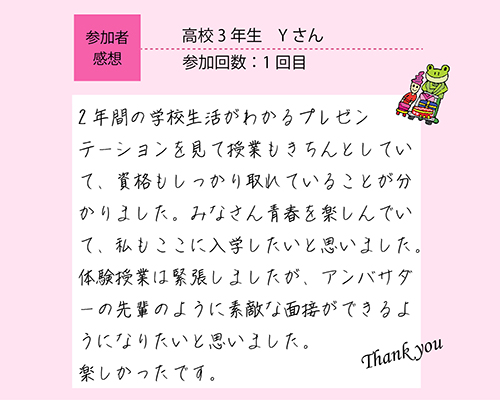 参加者
感想
高校3年生　Yさん
参加回数：1回目
2年間の学校生活がわかるプレゼン
テーションを見て授業もきちんとしてい
て、資格もしっかり取れていることが分
かりました。みなさん青春を楽しんでい
て、私もここに入学したいと思いました。
体験授業は緊張しましたが、アンバサダ
ーの先輩のように素敵な面接ができるよ
うになりたいと思いました。
楽しかったです。
Thank you